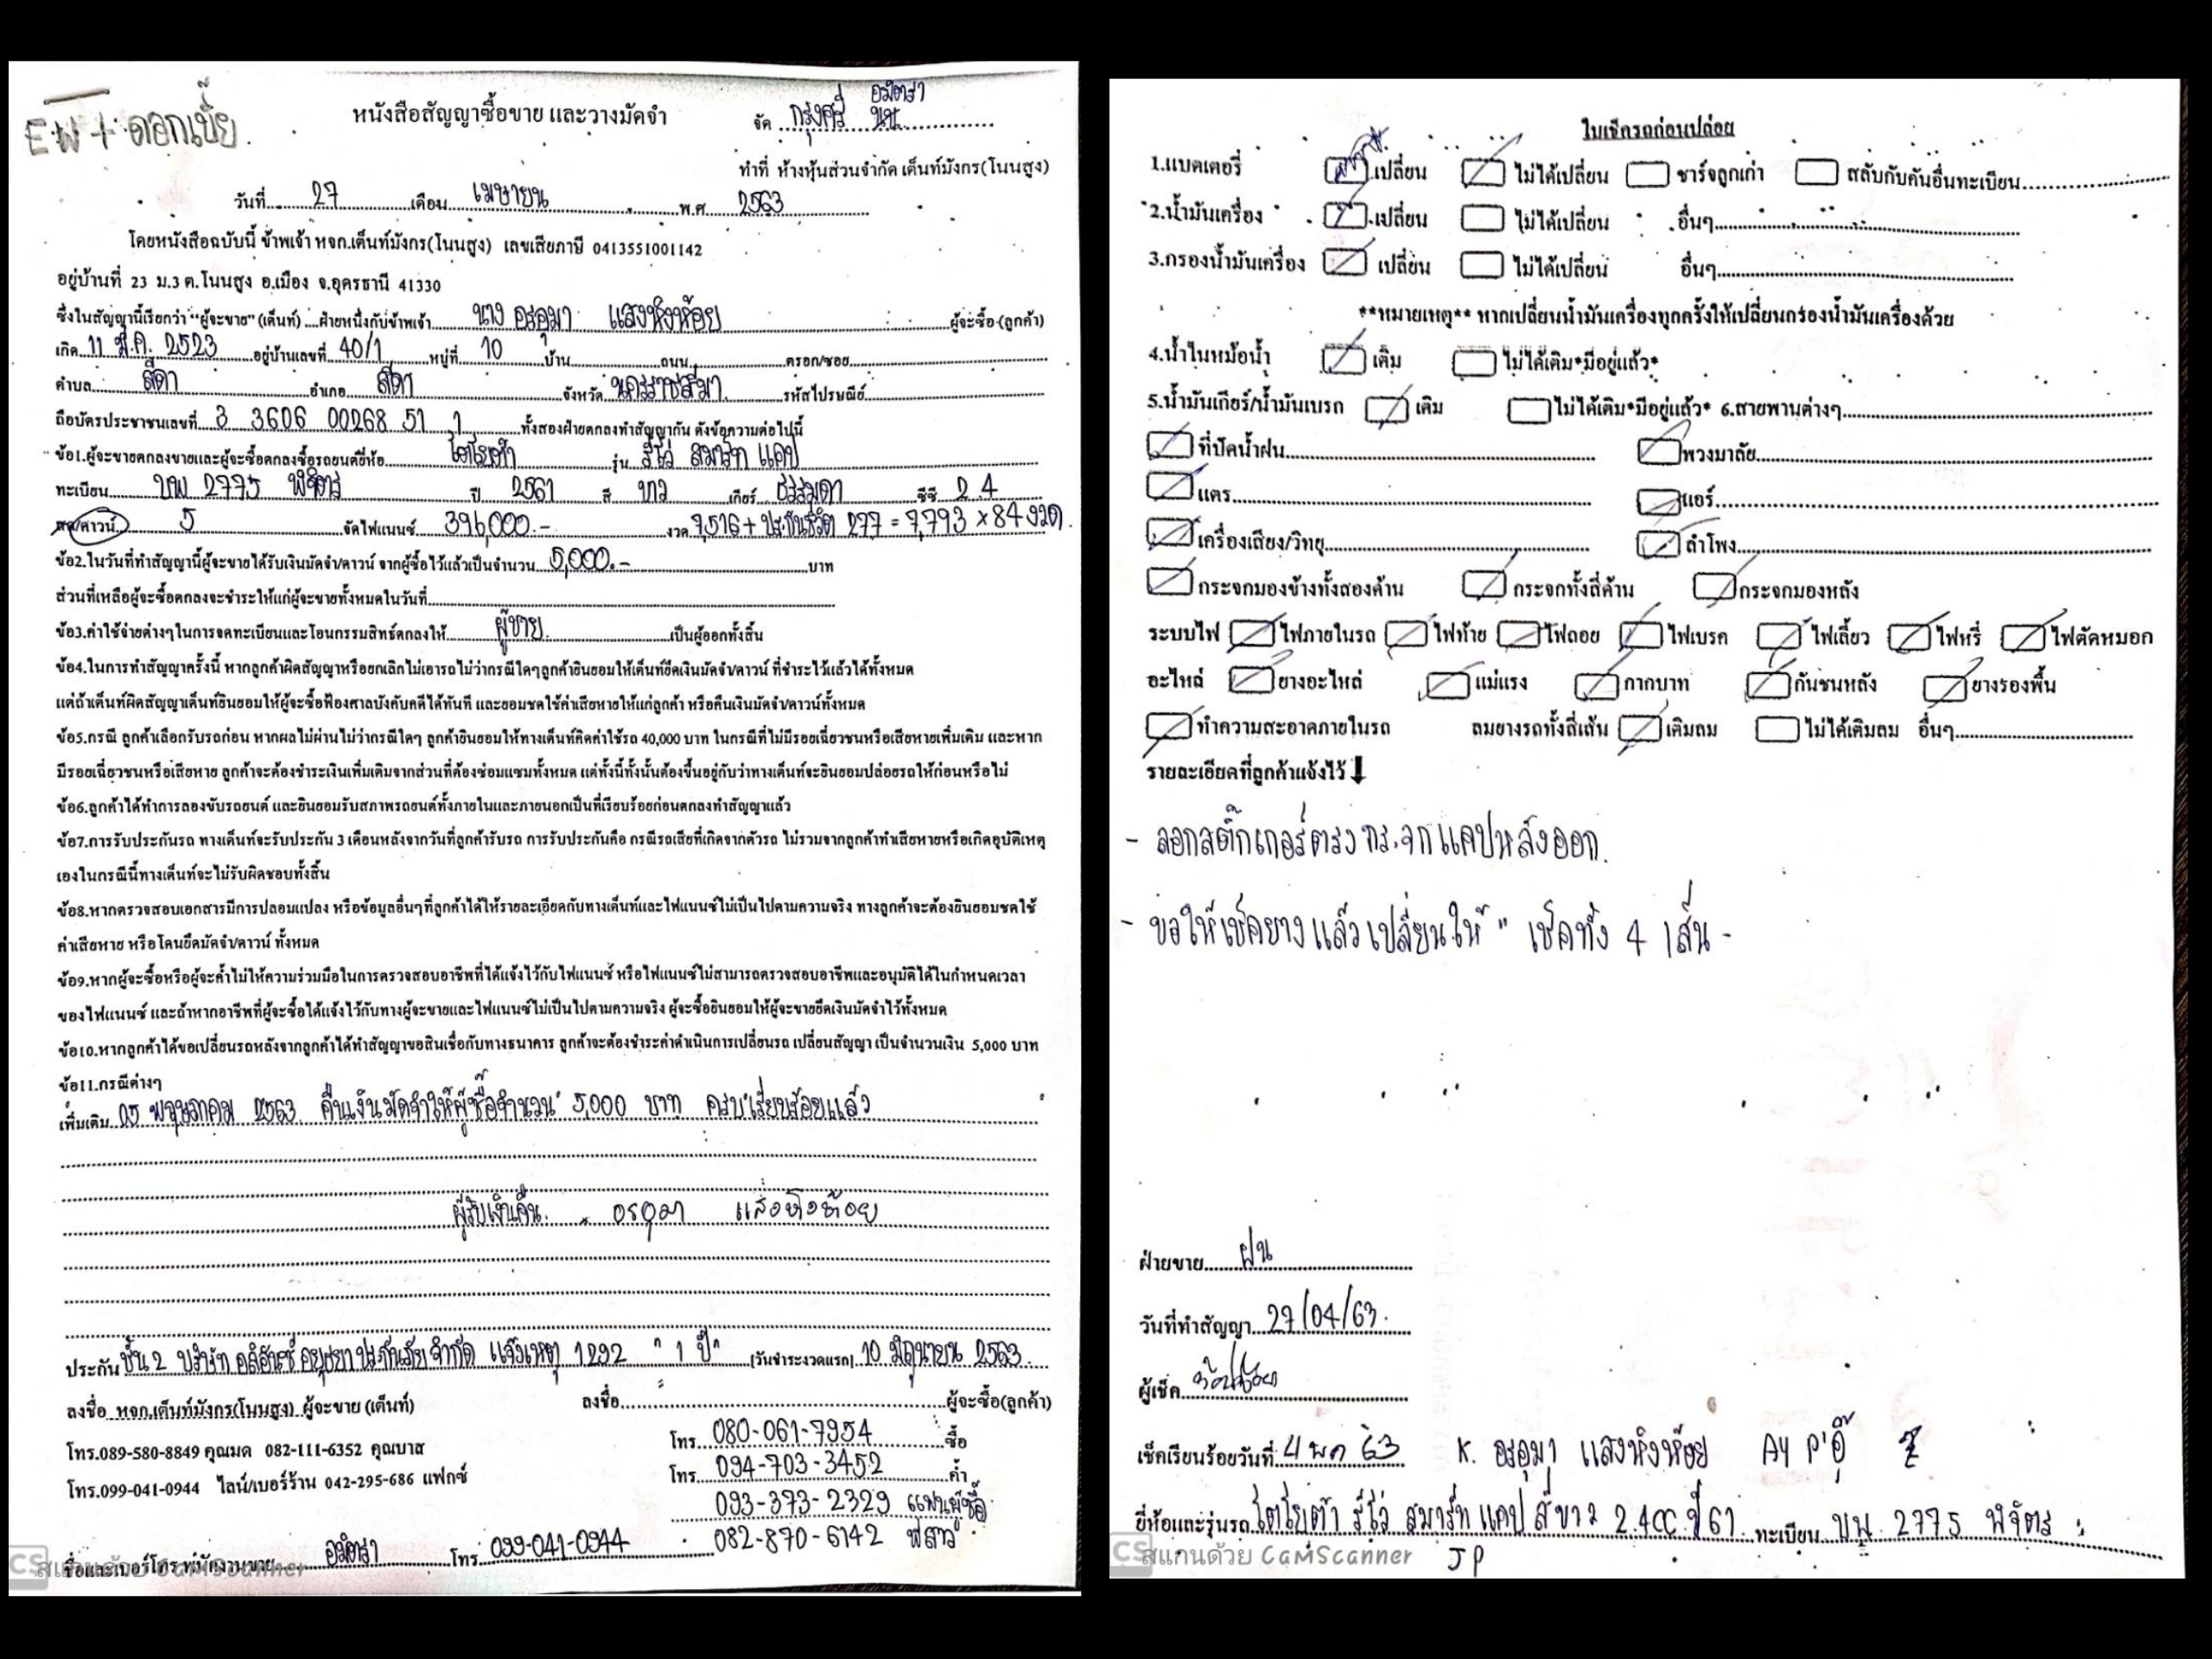 EW + ดอกเบี้ย
หนังสือสัญญาซื้อขาย และวางมัดจำ
จัด กรุงศรี อมิตรา นช.
ทำที่ ห้างหุ้นส่วนจำกัด เต็นท์มังกร(โนนสูง)
วันที่ 27 เดือน เมษายน พ.ศ 2563
โดยหนังสือฉบับนี้ ข้าพเจ้า หจก.เต็นท์มังกร(โนนสูง) เลขเสียภาษี 0413551001142
อยู่บ้านที่ 23 ม.3 ต.โนนสูง อ.เมือง จ.อุดรธานี 41330
ซึ่งในสัญญานี้เรียกว่า "ผู้จะขาย" (เต็นท์) ....ฝ่ายหนึ่งกับข้าพเจ้า นาง อรอุมา แสงหิ่งห้อย ผู้จะซื้อ (ลูกค้า)
เกิด 11 มี.ค. 2523 อยู่บ้านเลขที่ 40/1 หมู่ที่ 10 บ้าน ถนน ตรอก/ซอย
ตำบล สีดา อำเภอ สีดา จังหวัด นครราชสีมา รหัสไปรษณีย์
ถือบัตรประชาชนเลขที่ 3 3606 00268 51 1 ทั้งสองฝ่ายตกลงทำสัญญากัน ดังข้อความต่อไปนี้
ข้อ1.ผู้จะขายตกลงขายและผู้จะซื้อตกลงซื้อรถยนต์ยี่ห้อ โตโยต้า รุ่น รีโว่ สมาร์ท แคป
ทะเบียน บพ 2775 พิจิตร ปี 2561 สี ขาว เกียร์ ธรรมดา ซีซี 2.4
สด/ดาวน์ 5 จัดไฟแนนซ์ 396,000.- งวด 7,516 + ประกันชีวิต 277 = 7,793 x 84 งวด.
ข้อ2.ในวันที่ทำสัญญานี้ผู้จะขายได้รับเงินมัดจำ/ดาวน์ จากผู้ซื้อไว้แล้วเป็นจำนวน 5,000.- บาท
ส่วนที่เหลือผู้จะซื้อตกลงจะชำระให้แก่ผู้จะขายทั้งหมดในวันที่
ข้อ3.ค่าใช้จ่ายต่างๆในการจดทะเบียนและโอนกรรมสิทธ์ตกลงให้ ผู้ขาย เป็นผู้ออกทั้งสิ้น
ข้อ4.ในการทำสัญญาครั้งนี้ หากลูกค้าผิดสัญญาหรือยกเลิกไม่เอารถไม่ว่ากรณีใดๆลูกค้ายินยอมให้เต็นท์ยึดเงินมัดจำ/ดาวน์ ที่ชำระไว้แล้วได้ทั้งหมด
แต่ถ้าเต็นท์ผิดสัญญาเต็นท์ยินยอมให้ผู้จะซื้อฟ้องศาลบังคับคดีได้ทันที และยอมชดใช้ค่าเสียหายให้แก่ลูกค้า หรือคืนเงินมัดจำ/ดาวน์ทั้งหมด
ข้อ5.กรณี ลูกค้าเลือกรับรถก่อน หากผลไม่ผ่านไม่ว่ากรณีใดๆ ลูกค้ายินยอมให้ทางเต็นท์คิดค่าใช้รถ 40,000 บาท ในกรณีที่ไม่มีรอยเฉี่ยวชนหรือเสียหายเพิ่มเติม และหาก
มีรอยเฉี่ยวชนหรือเสียหาย ลูกค้าจะต้องชำระเงินเพิ่มเติมจากส่วนที่ต้องซ่อมแซมทั้งหมด แต่ทั้งนี้ทั้งนั้นต้องขึ้นอยู่กับว่าทางเต็นท์จะยินยอมปล่อยรถให้ก่อนหรือไม่
ข้อ6.ลูกค้าได้ทำการลองขับรถยนต์ และยินยอมรับสภาพรถยนต์ทั้งภายในและภายนอกเป็นที่เรียบร้อยก่อนตกลงทำสัญญาแล้ว
ข้อ7.การรับประกันรถ ทางเต็นท์จะรับประกัน 3 เดือนหลังจากวันที่ลูกค้ารับรถ การรับประกันคือ กรณีรถเสียที่เกิดจากตัวรถ ไม่รวมจากลูกค้าทำเสียหายหรือเกิดอุบัติเหตุ
เองในกรณีนี้ทางเต็นท์จะไม่รับผิดชอบทั้งสิ้น
ข้อ8.หากตรวจสอบเอกสารมีการปลอมแปลง หรือข้อมูลอื่นๆที่ลูกค้าได้ให้รายละเอียดกับทางเต็นท์และไฟแนนซ์ไม่เป็นไปตามความจริง ทางลูกค้าจะต้องยินยอมชดใช้
ค่าเสียหาย หรือโดนยึดมัดจำ/ดาวน์ ทั้งหมด
ข้อ9.หากผู้จะซื้อหรือผู้จะค้ำไม่ให้ความร่วมมือในการตรวจสอบอาชีพที่ได้แจ้งไว้กับไฟแนนซ์ หรือไฟแนนซ์ไม่สามารถตรวจสอบอาชีพและอนุมัติได้ในกำหนดเวลา
ของไฟแนนซ์ และถ้าหากอาชีพที่ผู้จะซื้อได้แจ้งไว้กับทางผู้จะขายและไฟแนนซ์ไม่เป็นไปตามความจริง ผู้จะซื้อยินยอมให้ผู้จะขายยึดเงินมัดจำไว้ทั้งหมด
ข้อ10.หากลูกค้าได้ขอเปลี่ยนรถหลังจากลูกค้าได้ทำสัญญาขอสินเชื่อกับทางธนาคาร ลูกค้าจะต้องชำระค่าดำเนินการเปลี่ยนรถ เปลี่ยนสัญญา เป็นจำนวนเงิน 5,000 บาท
ข้อ11.กรณีต่างๆ
เพิ่มเติม 05 พฤษภาคม 2563 คืนเงินมัดจำให้ผู้ซื้อจำนวน 5,000 บาท ครบเรียบร้อยแล้ว
ผู้รับเงินคืน. อรอุมา แสงหิ่งห้อย
ประกัน ชั้น 2 บริษัท อลิอันซ์ อยุธยา ประกันภัย จำกัด แจ้งเหตุ 1292 "1 ปี" [วันชำระงวดแรก] 10 มิถุนายน 2563
ลงชื่อ หจก.เต็นท์มังกร(โนนสูง) ผู้จะขาย (เต็นท์) ลงชื่อ ผู้จะซื้อ(ลูกค้า)
โทร.089-580-8849 คุณมด 082-111-6352 คุณบาส โทร 080-061-7954 ซื้อ
โทร.099-041-0944 ไลน์/เบอร์ร้าน 042-295-686 แฟกซ์ โทร 094-703-3452 ค้ำ
093-373-2329 แฟนผู้ซื้อ
ชื่อและเบอร์โทร พนักงานขาย อมิตรา โทร 099-041-0944 082-870-6142 พี่สาว
CS สแกนด้วย CamScanner
ใบเช็กรถก่อนปล่อย
1.แบตเตอรี่ เปลี่ยน ไม่ได้เปลี่ยน ชาร์จลูกเก่า สลับกับคันอื่นทะเบียน
2.น้ำมันเครื่อง เปลี่ยน ไม่ได้เปลี่ยน อื่นๆ
3.กรองน้ำมันเครื่อง เปลี่ยน ไม่ได้เปลี่ยน อื่นๆ
**หมายเหตุ** หากเปลี่ยนน้ำมันเครื่องทุกครั้งให้เปลี่ยนกรองน้ำมันเครื่องด้วย
4.น้ำในหม้อน้ำ เติม ไม่ได้เติม*มีอยู่แล้ว*
5.น้ำมันเกียร์/น้ำมันเบรก เติม ไม่ได้เติม*มีอยู่แล้ว* 6.สายพานต่างๆ
ที่ปัดน้ำฝน พวงมาลัย
แตร แอร์
เครื่องเสียง/วิทยุ ลำโพง
กระจกมองข้างทั้งสองด้าน กระจกทั้งสี่ด้าน กระจกมองหลัง
ระบบไฟ ไฟภายในรถ ไฟท้าย ไฟถอย ไฟเบรค ไฟเลี้ยว ไฟหรี่ ไฟตัดหมอก
อะไหล่ ยางอะไหล่ แม่แรง กากบาท กันชนหลัง ยางรองพื้น
ทำความสะอาดภายในรถ ลมยางรถทั้งสี่เส้น เติมลม ไม่ได้เติมลม อื่นๆ
รายละเอียดที่ลูกค้าแจ้งไว้
- ลอกสติ๊กเกอร์ตรงกระจกแคปหลังออก.
- ขอให้เช็คยางแล้วเปลี่ยนให้ " เช็คทั้ง 4 เส้น -
ฝ่ายขาย ฝน
วันที่ทำสัญญา 27/04/63.
ผู้เช็ค
เช็คเรียบร้อยวันที่ 4 พค 63 K. อรอุมา แสงหิ่งห้อย AY P'อู๊
ยี่ห้อและรุ่นรถ โตโยต้า รีโว่ สมาร์ท แคป สีขาว 2.4CC ปี 61 ทะเบียน บพ 2775 พิจิตร
JP
CS สแกนด้วย CamScanner